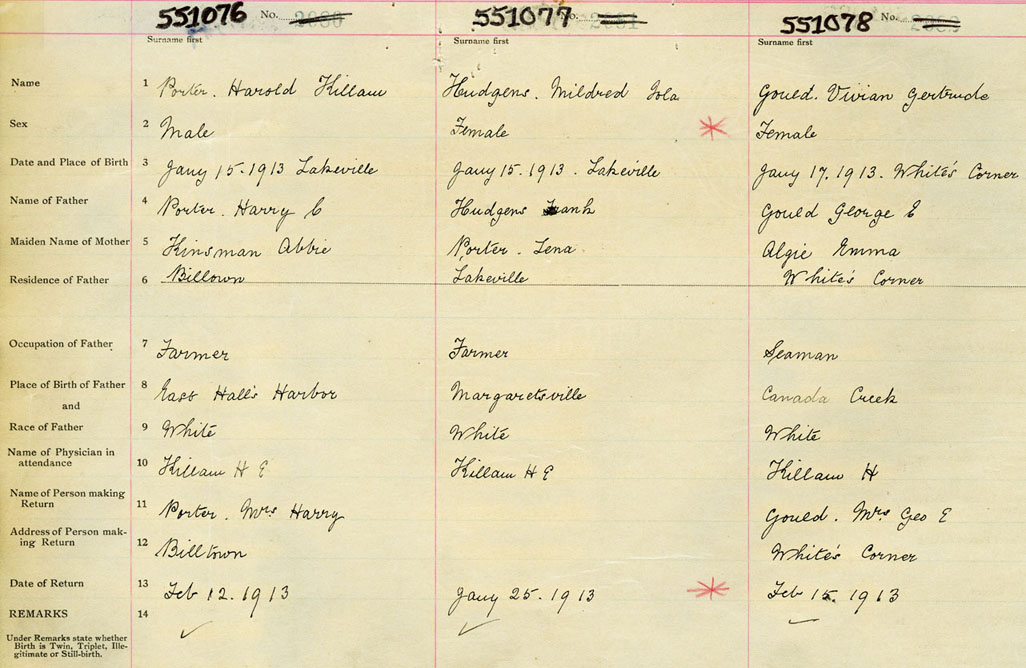 551076 No. 2080 551077 No. 2081 551078 No.
Surname first Surname first Surname first
Name 1 Porter. Harold Killam Hudgens. Mildred Iola Gould. Vivian Gertrude
Sex 2 Male Female Female
Date and Place of Birth 3 Jany 15.1913 Lakeville Jany 15.1913. Lakeville Jany 17.1913. White's Corner
Name of Father 4 Porter. Harry C Hudgens Frank Gould George E
Maiden Name of Mother 5 Kinsman Abbie Porter. Lena Algie Emma
Residence of Father 6 Billown Lakeville White's Corner
Occupation of Father 7 Farmer Farmer Seaman
Place of Birth of Father 8 East Hall's Harbor Margaretsville Canada Creek
and
Race of Father 9 White White White
Name of Physician in
attendance 10 Killam H E Killam H E Killam H
Name of Person making
Return 11 Porter. Mrs Harry Gould. Mrs Geo E
Address of Person mak-
ing Return 12 Billtown White's Corner
Date of Return 13 Feb 12.1913 Jany 25.1913 Feb 15.1913
REMARKS 14
Under Remarks state whether
Birth is Twin, Triplet, Ille-
gitimate or Still-birth.